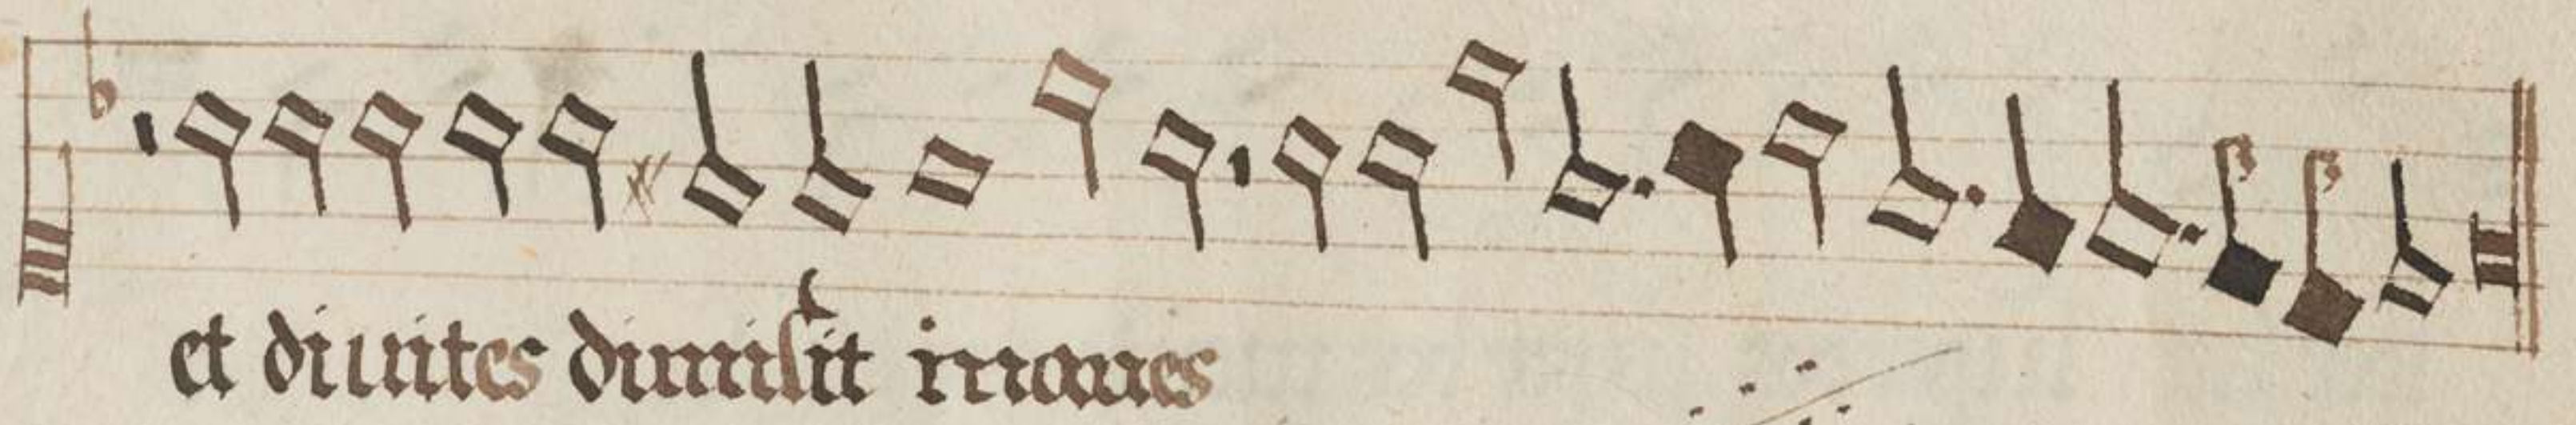 et diuites dimisit inanes